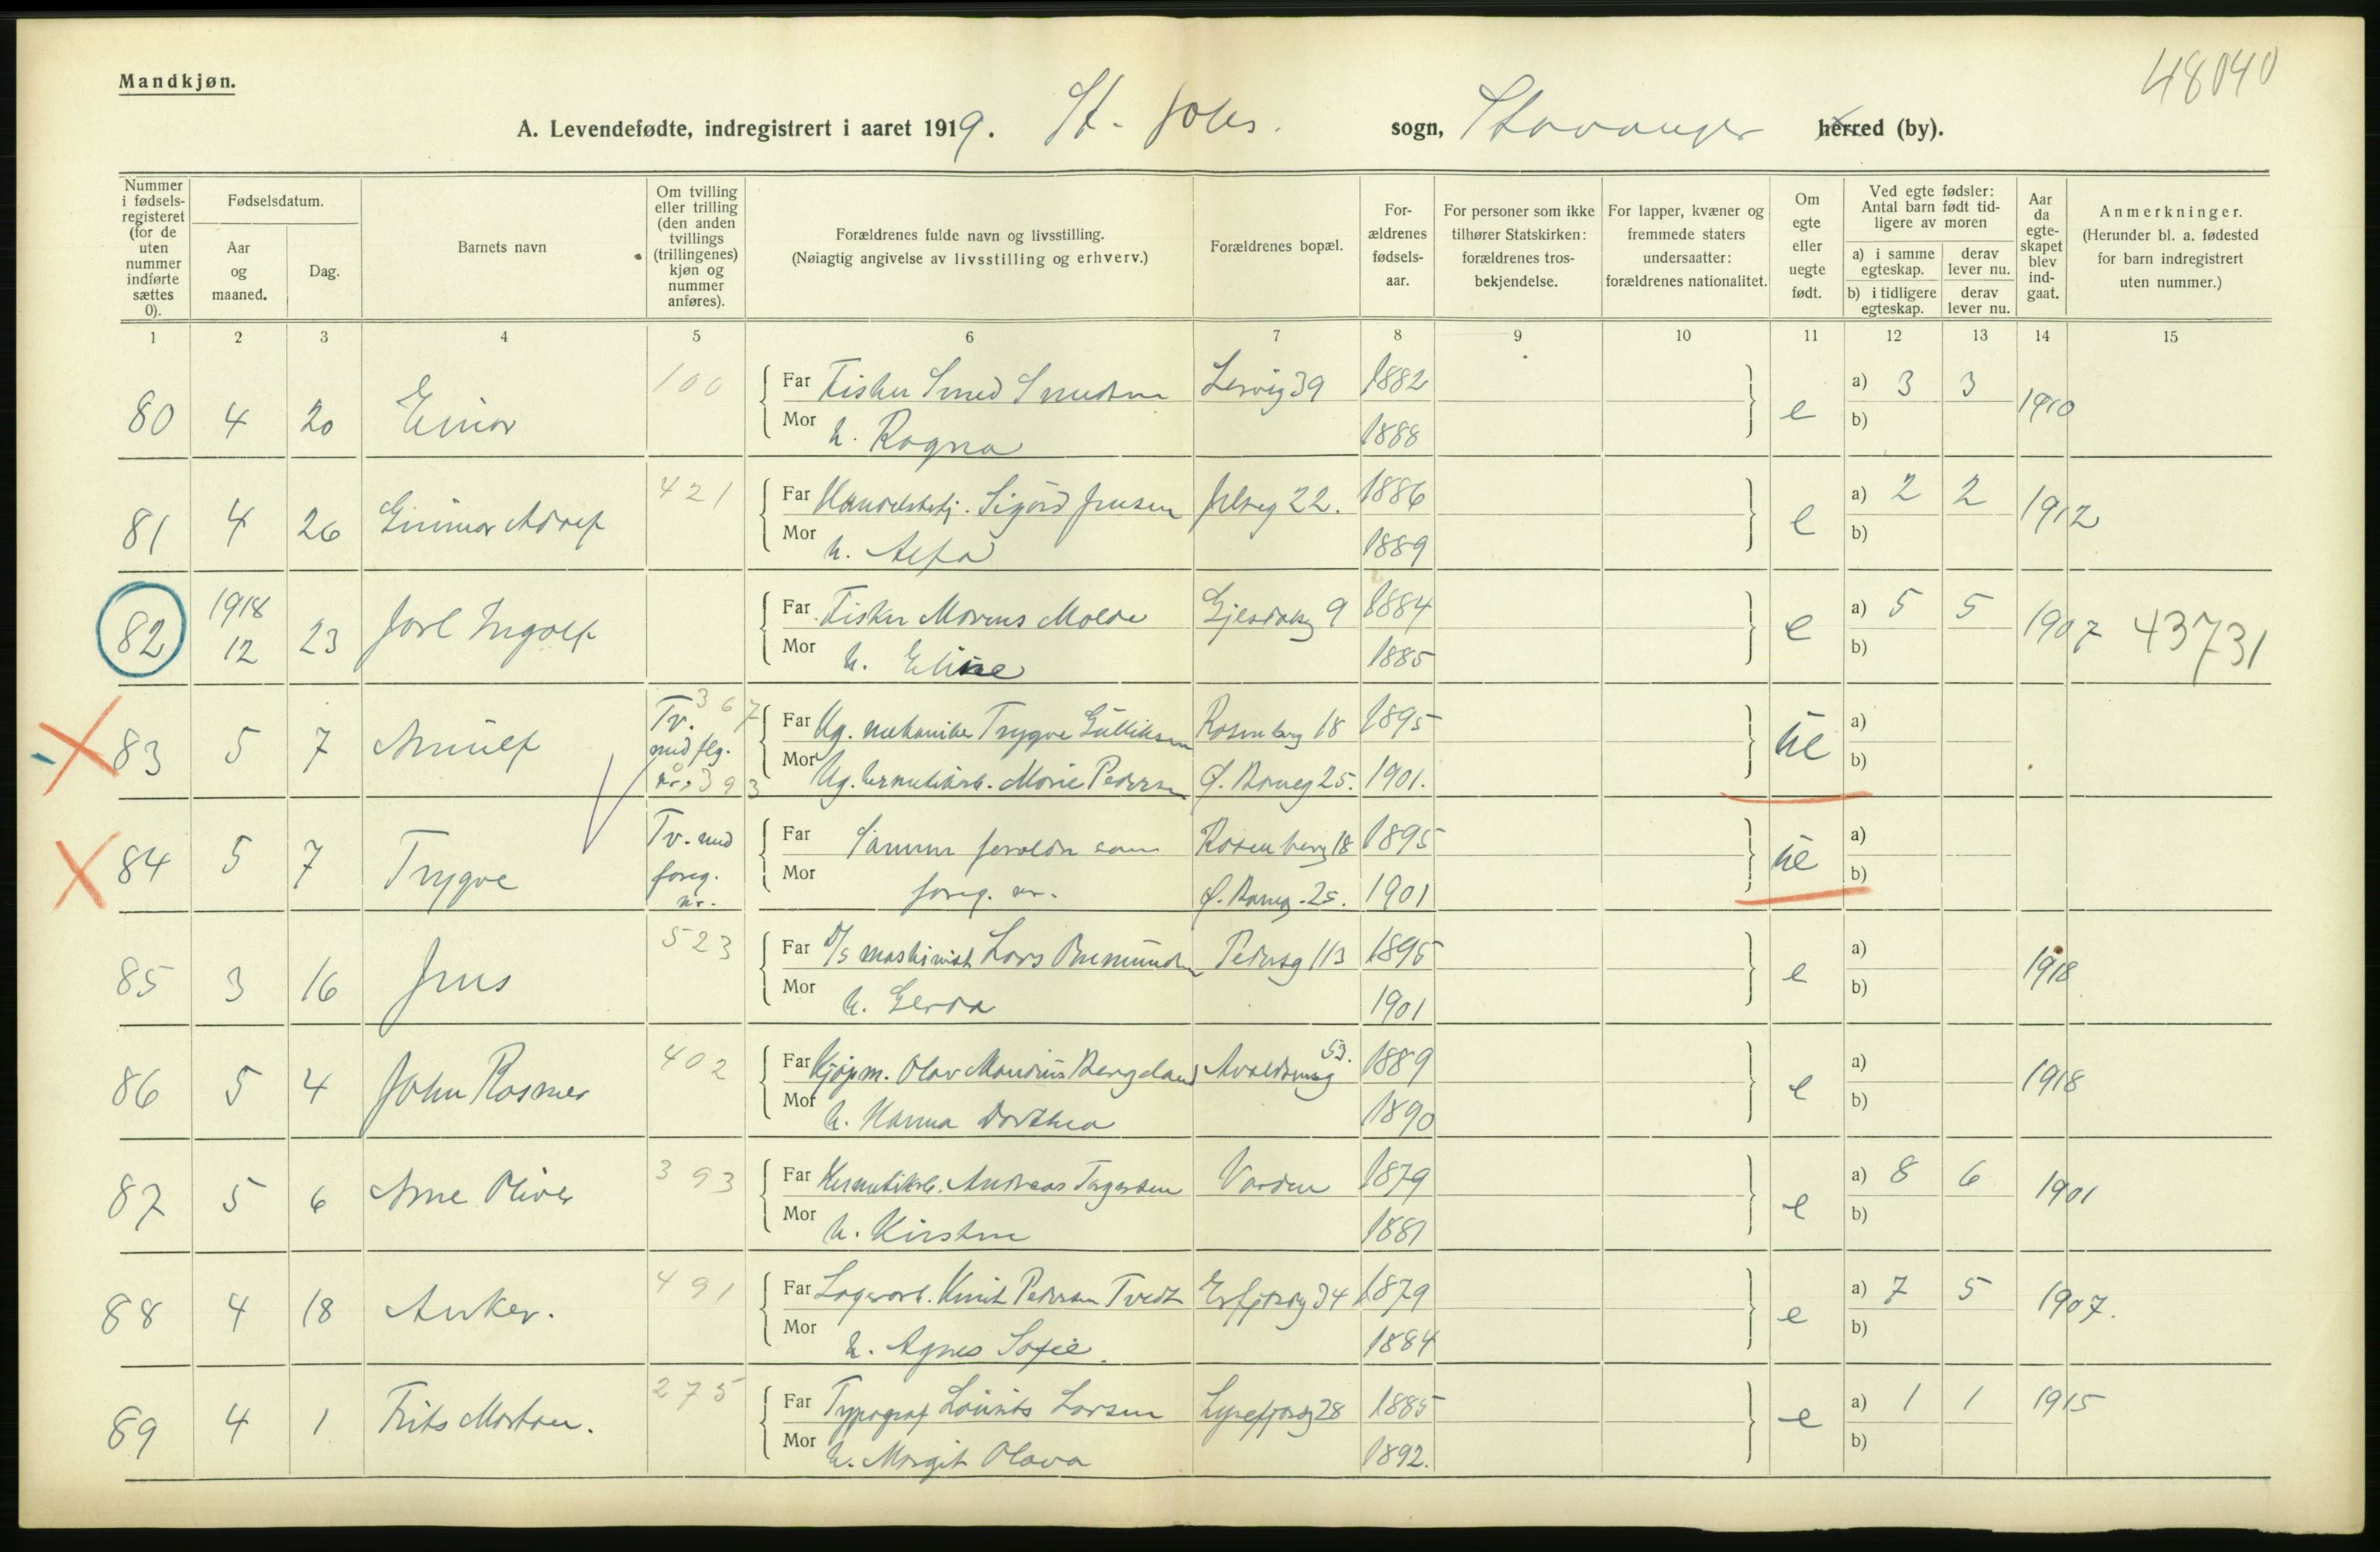 Mandkjøn.
48040
A. Levendefødte, indregistrert i aaret 1919. St. Johs. sogn, Stavanger herred (by).
Nummer i fødsels-registeret (for de uten nummer indførte sættes 0).
Fødselsdatum.
Aar og maaned.
Dag.
Barnets navn
Om tvilling eller trilling (den anden tvillings (trillingenes) kjøn og nummer anføres).
Forældrenes fulde navn og livsstilling.
(Nøiagtig angivelse av livsstilling og erhverv.)
Forældrenes bopæl.
For-ældrenes fødsels-aar.
For personer som ikke tilhører Statskirken: forældrenes tros-bekjendelse.
For lapper, kvæner og fremmede staters undersaatter: forældrenes nationalitet.
Om egte eller uegte født.
Ved egte fødsler: Antal barn født tid-ligere av moren
a) i samme egteskap. derav lever nu.
b) i tidligere egteskap. derav lever nu.
Aar da egte-skapet blev ind-gaat.
Anmerkninger.
(Herunder bl. a. fødested for barn indregistrert uten nummer.)
1 2 3 4 5 6 7 8 9 10 11 12 13 14 15
80 4 20 Einar 100 Far Fisker 39 1882 e a) 3 3 1910
Mor h. Ragna 1888 b)
81 4 26 Adolf 421 Far Sigurd Jensen 22. 1886 e a) 2 2 1912
Mor h. 1889 b)
82 1918 12 23 Jarl Ingolf Far Fisker Molde 9 1884 e a) 5 5 1907 43731
Mor h. Eline 1885 b)
83 5 7 Arnulf Tv. 367 med flg. nr. 393 Far Ug. mekaniker Trygve Gulliksen Rosenberg 18 1895 ue a)
Mor Ug. hermetikarb. Marie Pedersen 25. 1901. b)
84 5 7 Trygve Tv. med foreg. nr. Far Samme foreldre som Rosenberg 18 1895 ue a)
Mor foreg. nr. 25. 1901 b)
85 3 16 Jens 523 Far D/s maskinist Lars Pedersg 113 1895 e a) 1918
Mor h. Gerda 1901 b)
86 5 4 John Rasmus 402 Far Kjøpm. Olav Bergeland 53. 1889 e a) 1918
Mor h. Hanna Dorthea 1890 b)
87 5 6 Arne Oliver 393 Far Hermetikarb. Andreas Torgersen Varden 1879 e a) 8 6 1901
Mor h. Kirsten 1881 b)
88 4 18 Anker. 491 Far Lagerarb. Knut Pedersen Tvedt Erfjordg 34 1879 e a) 7 5 1907.
Mor h. Agnes Sofie. 1884 b)
89 4 1 Frits Morton. 275 Far Typograf Laurits Larsen Lysefjordg 28 1885 e a) 1 1 1915
Mor h. Margit Olava 1892. b)